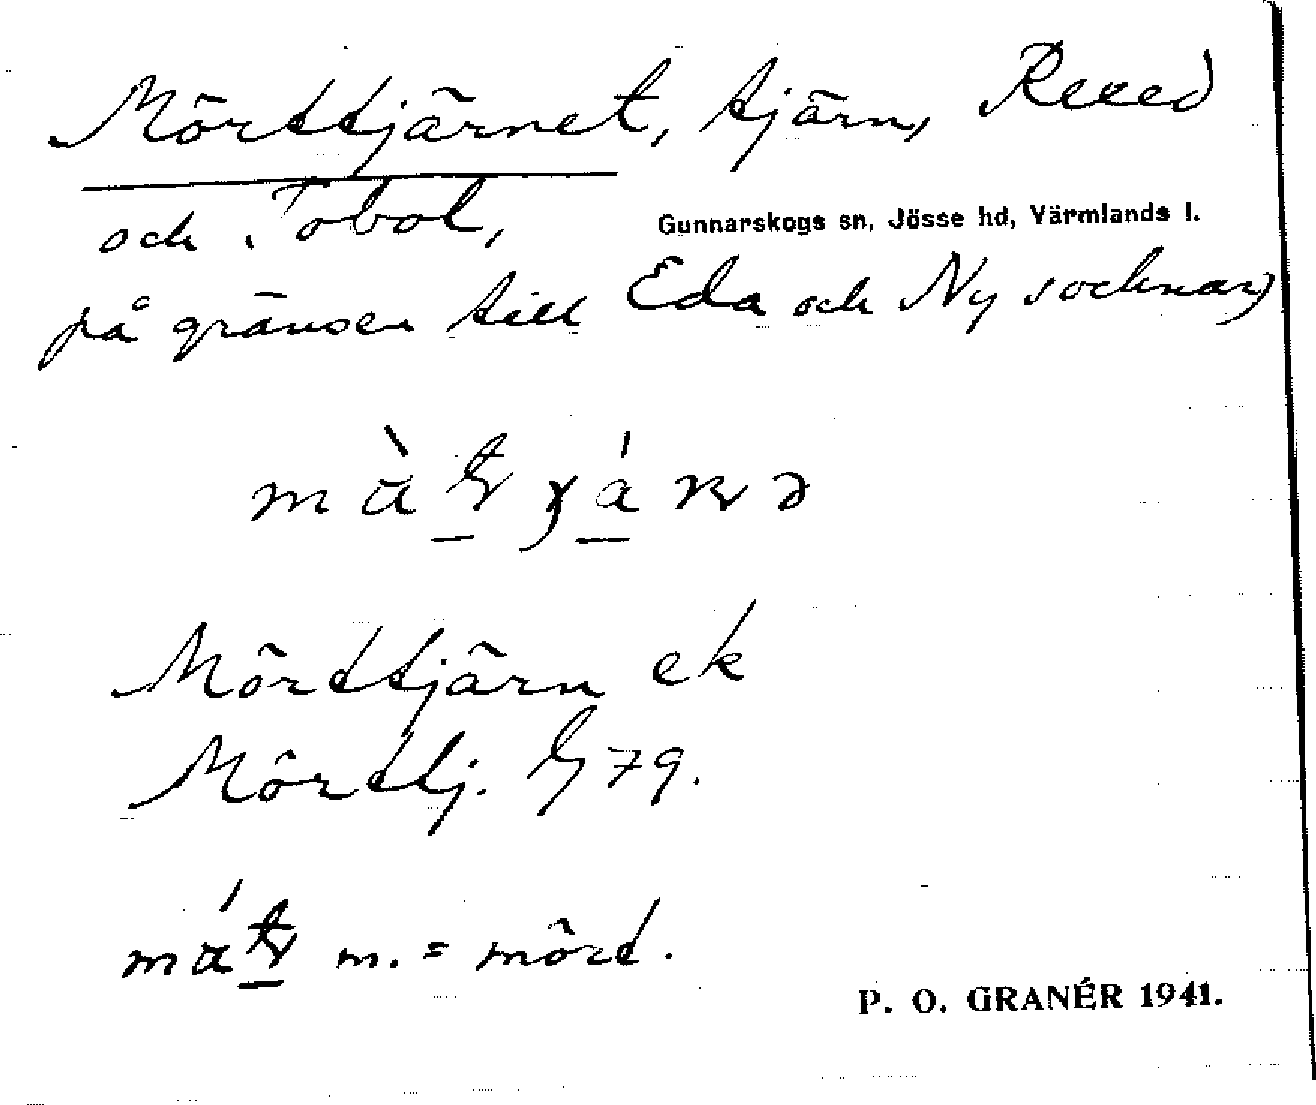 Mörttjärnet, tjärn,
och Tobol, Gunnarskogs sn, Jösse hd, Värmlands l.
på gränsen till Eda och Ny socknar
Mörttjärn ek
Mörttj. G 79.
m. = mört.
P. O. GRANÉR 1941.